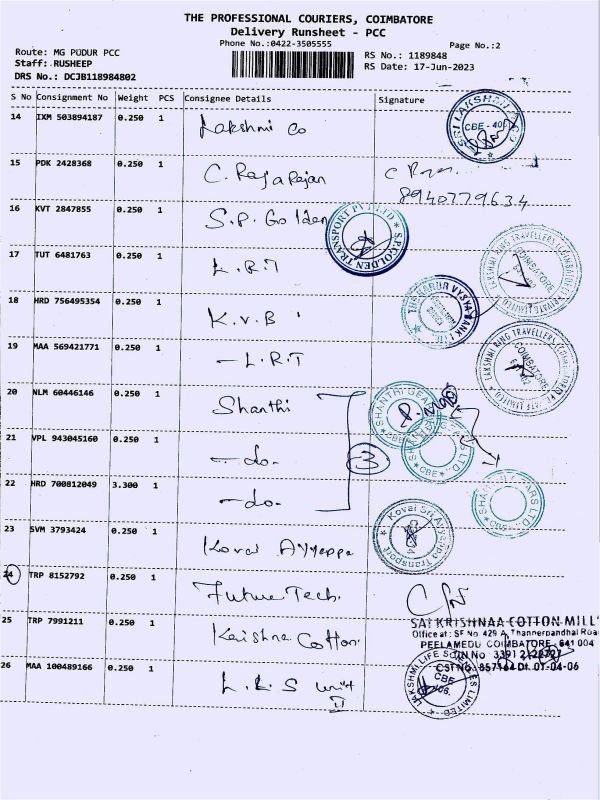 THE PROFESSIONAL COURIERS, COIMBATORE
Delivery Runsheet - PCC
Phone No.:0422-3505555
Page No.:2
Route: MG PUDUR PCC
Staff: RUSHEEP
DRS No.: DCJB118984802
RS No.: 1189848
RS Date: 17-Jun-2023
S No Consignment No Weight PCS Consignee Details Signature
14 IXM 503894187 0.250 1 Lakshmi Co
SRI LAKSHMI CBE - 40
15 PDK 2428368 0.250 1 C. Rajarajan
8940779634
16 KVT 2847855 0.250 1 S.P. Golden
S.P.GOLDEN TRANSPORT PVT LTD
17 TUT 6481763 0.250 1 L.R.T
LAKSHMI RING TRAVELLERS COIMBATORE
18 HRD 756495354 0.250 1 K.V.B
THE KARUR VYSYA BANK LTD
19 MAA 569421771 0.250 1 - L.R.T
LAKSHMI RING TRAVELLERS COIMBATORE
20 NLM 60446146 0.250 1 Shanthi
SHANTHI GEARS LTD CBE
21 VPL 943045160 0.250 1 - do -
3
22 HRD 700812049 3.300 1 - do -
23 SVM 3793424 0.250 1 Kovai Ayyappa
Kovai Sri Ayyappa Transport
24 TRP 8152792 0.250 1 Future Tech.
25 TRP 7991211 0.250 1 Krishna Cotton
SAI KRISHNAA COTTON MILL
Office at: SF No 429 A Thannerpandhal Road
PEELAMEDU COIMBATORE 641 004
CST No. 857164 Dt. 01-04-06
26 MAA 100489166 0.250 1 L.L.S unit II
LAKSHMI LIFE SCIENCES LIMITED CBE